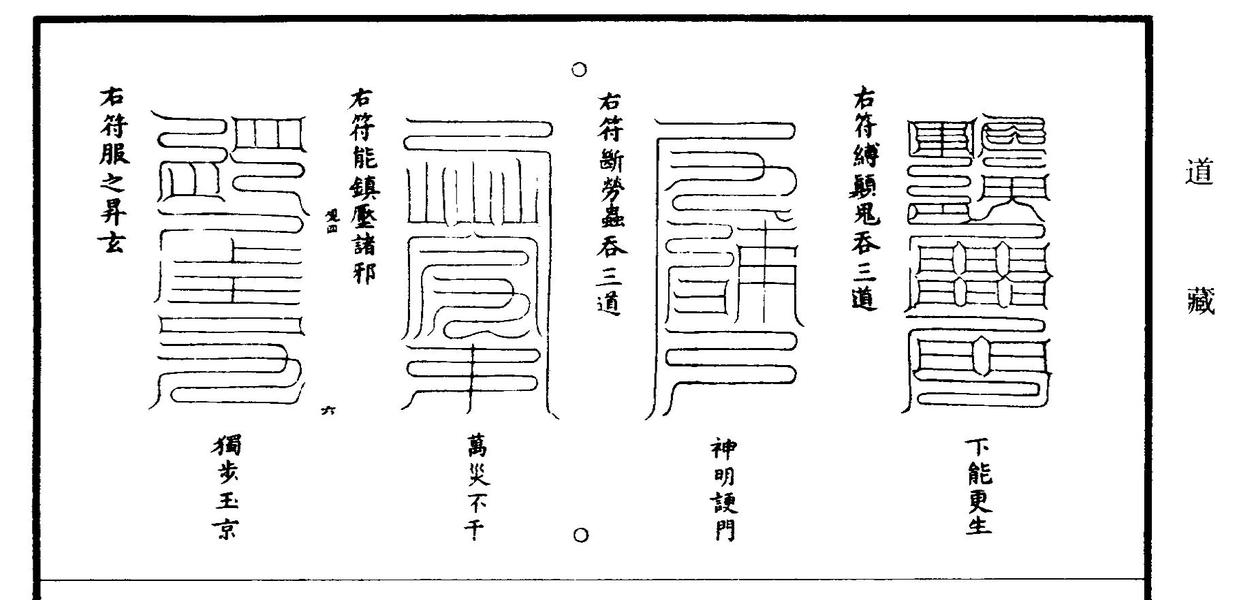 道藏
下能更生
右符縛顛鬼吞三道
神明諫門
右符斷勞蟲吞三道
萬災不干
右符能鎮壓諸邪
六
獨步玉京
右符服之昇玄